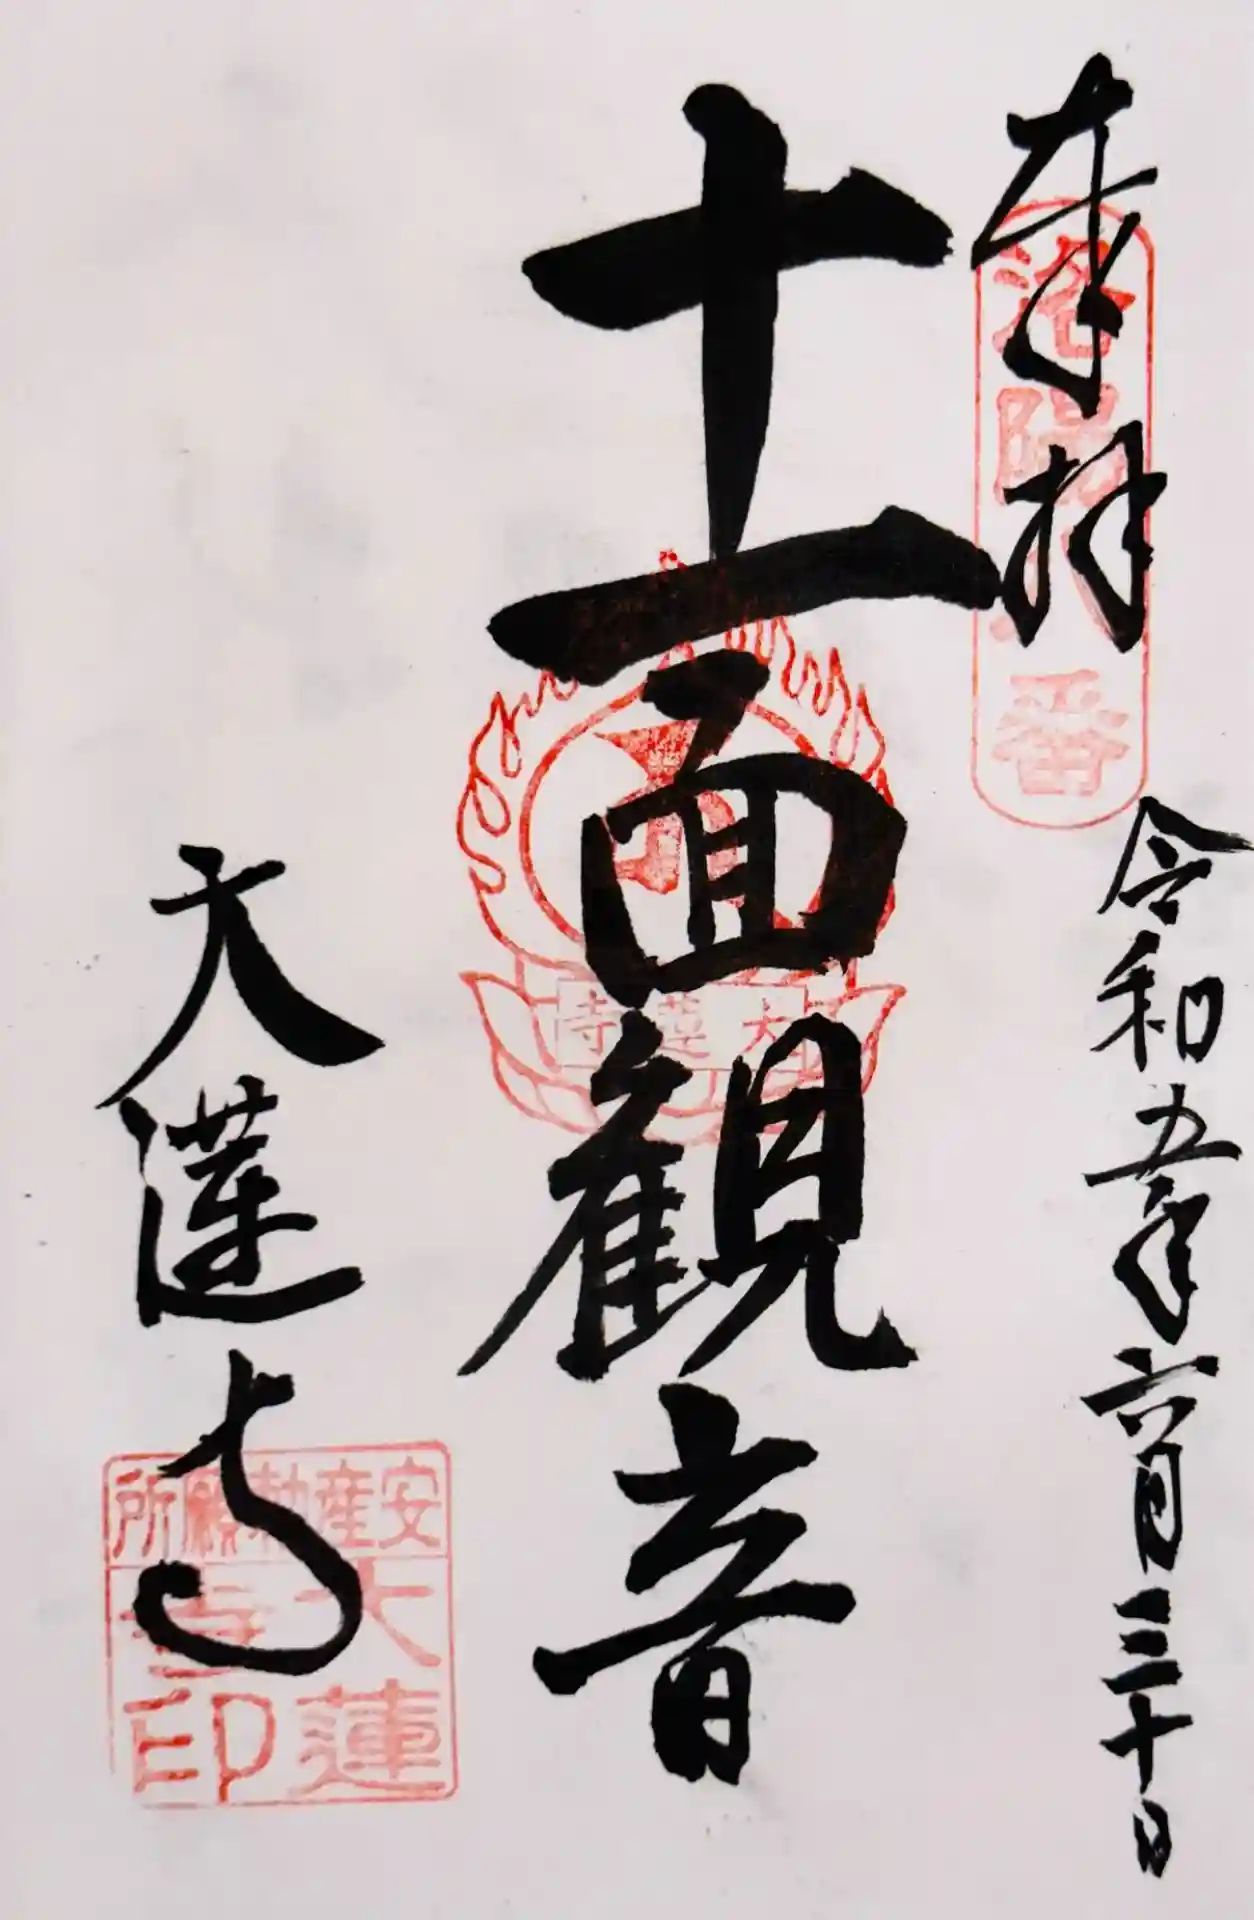 奉拝
令和五年六月三十日
十一面観音
大蓮寺
洛陽八番
大蓮寺
安産勅願所
大蓮寺印